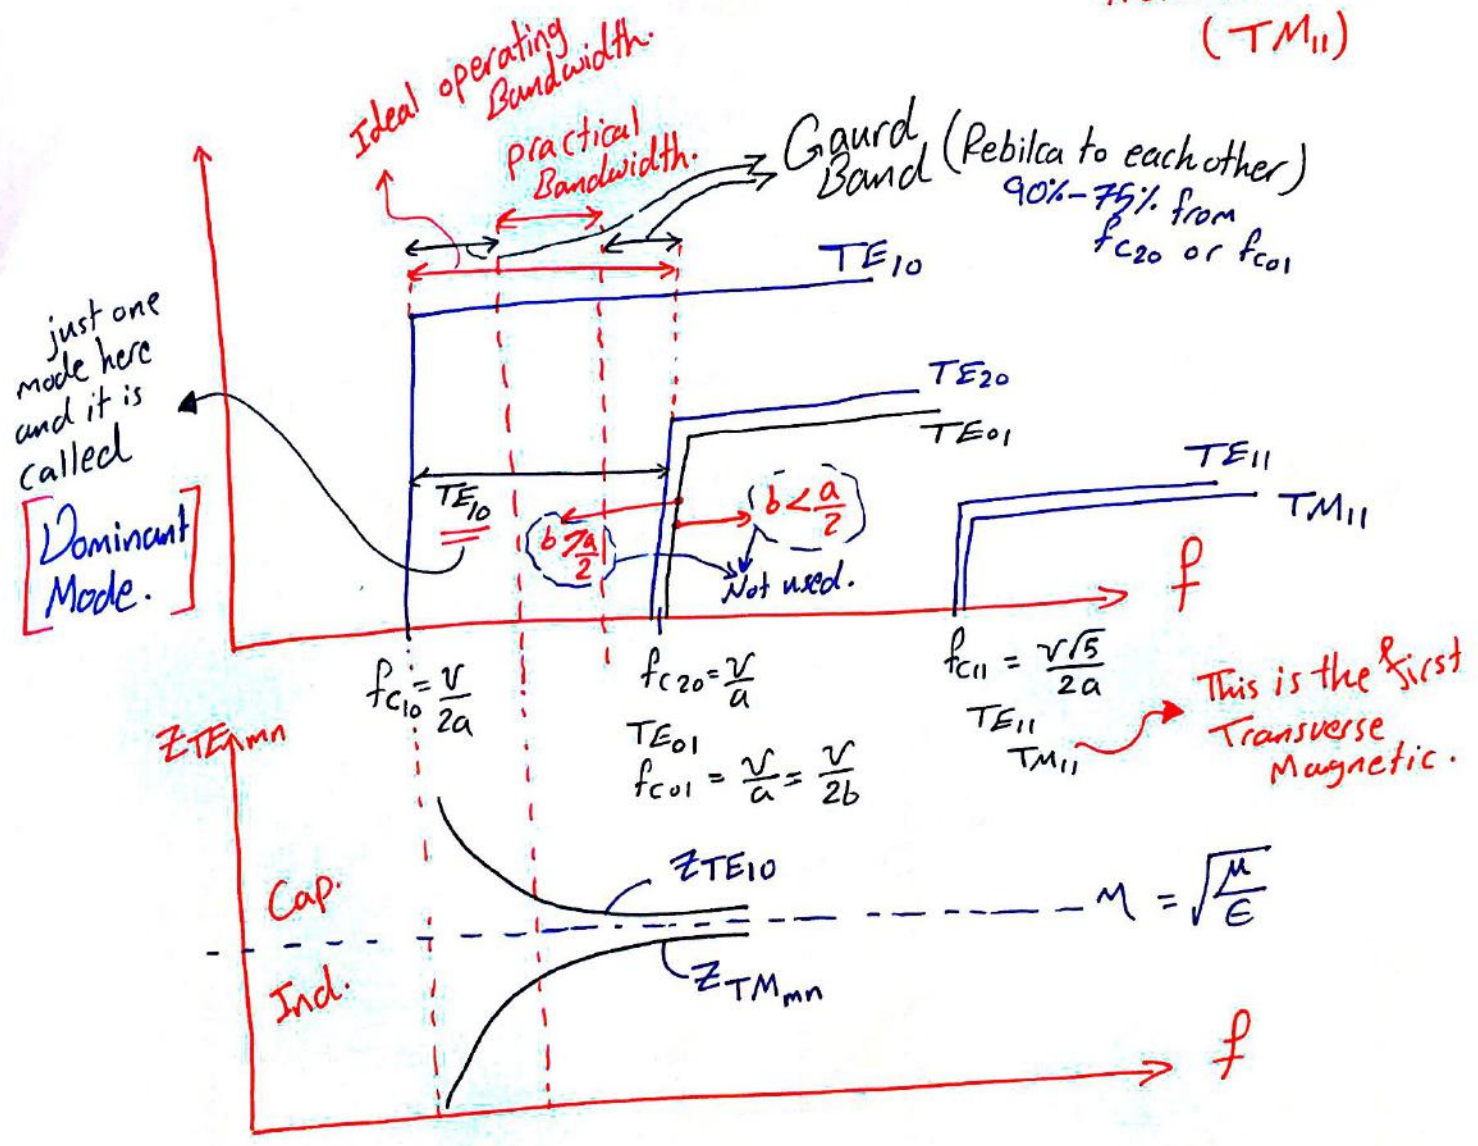 (TM₁₁)
Ideal operating
Bandwidth.
practical
Bandwidth.
Gaurd
Band (Rebilca to each other)
90%-75% from
fc20 or fc01
TE10
just one
mode here
and it is
called
[Dominant
Mode.]
TE20
TE01
TE11
TM11
TE10
b ≥ a/2
b < a/2
Not used.
f
fc10 = v/2a
fc20 = v/a
TE01
fc01 = v/a = v/2b
fc11 = v√5/2a
TE11
TM11
This is the first
Transverse
Magnetic.
ZTEmn
Cap.
Ind.
ZTE10
ZTMmn
η = √μ/ε
f